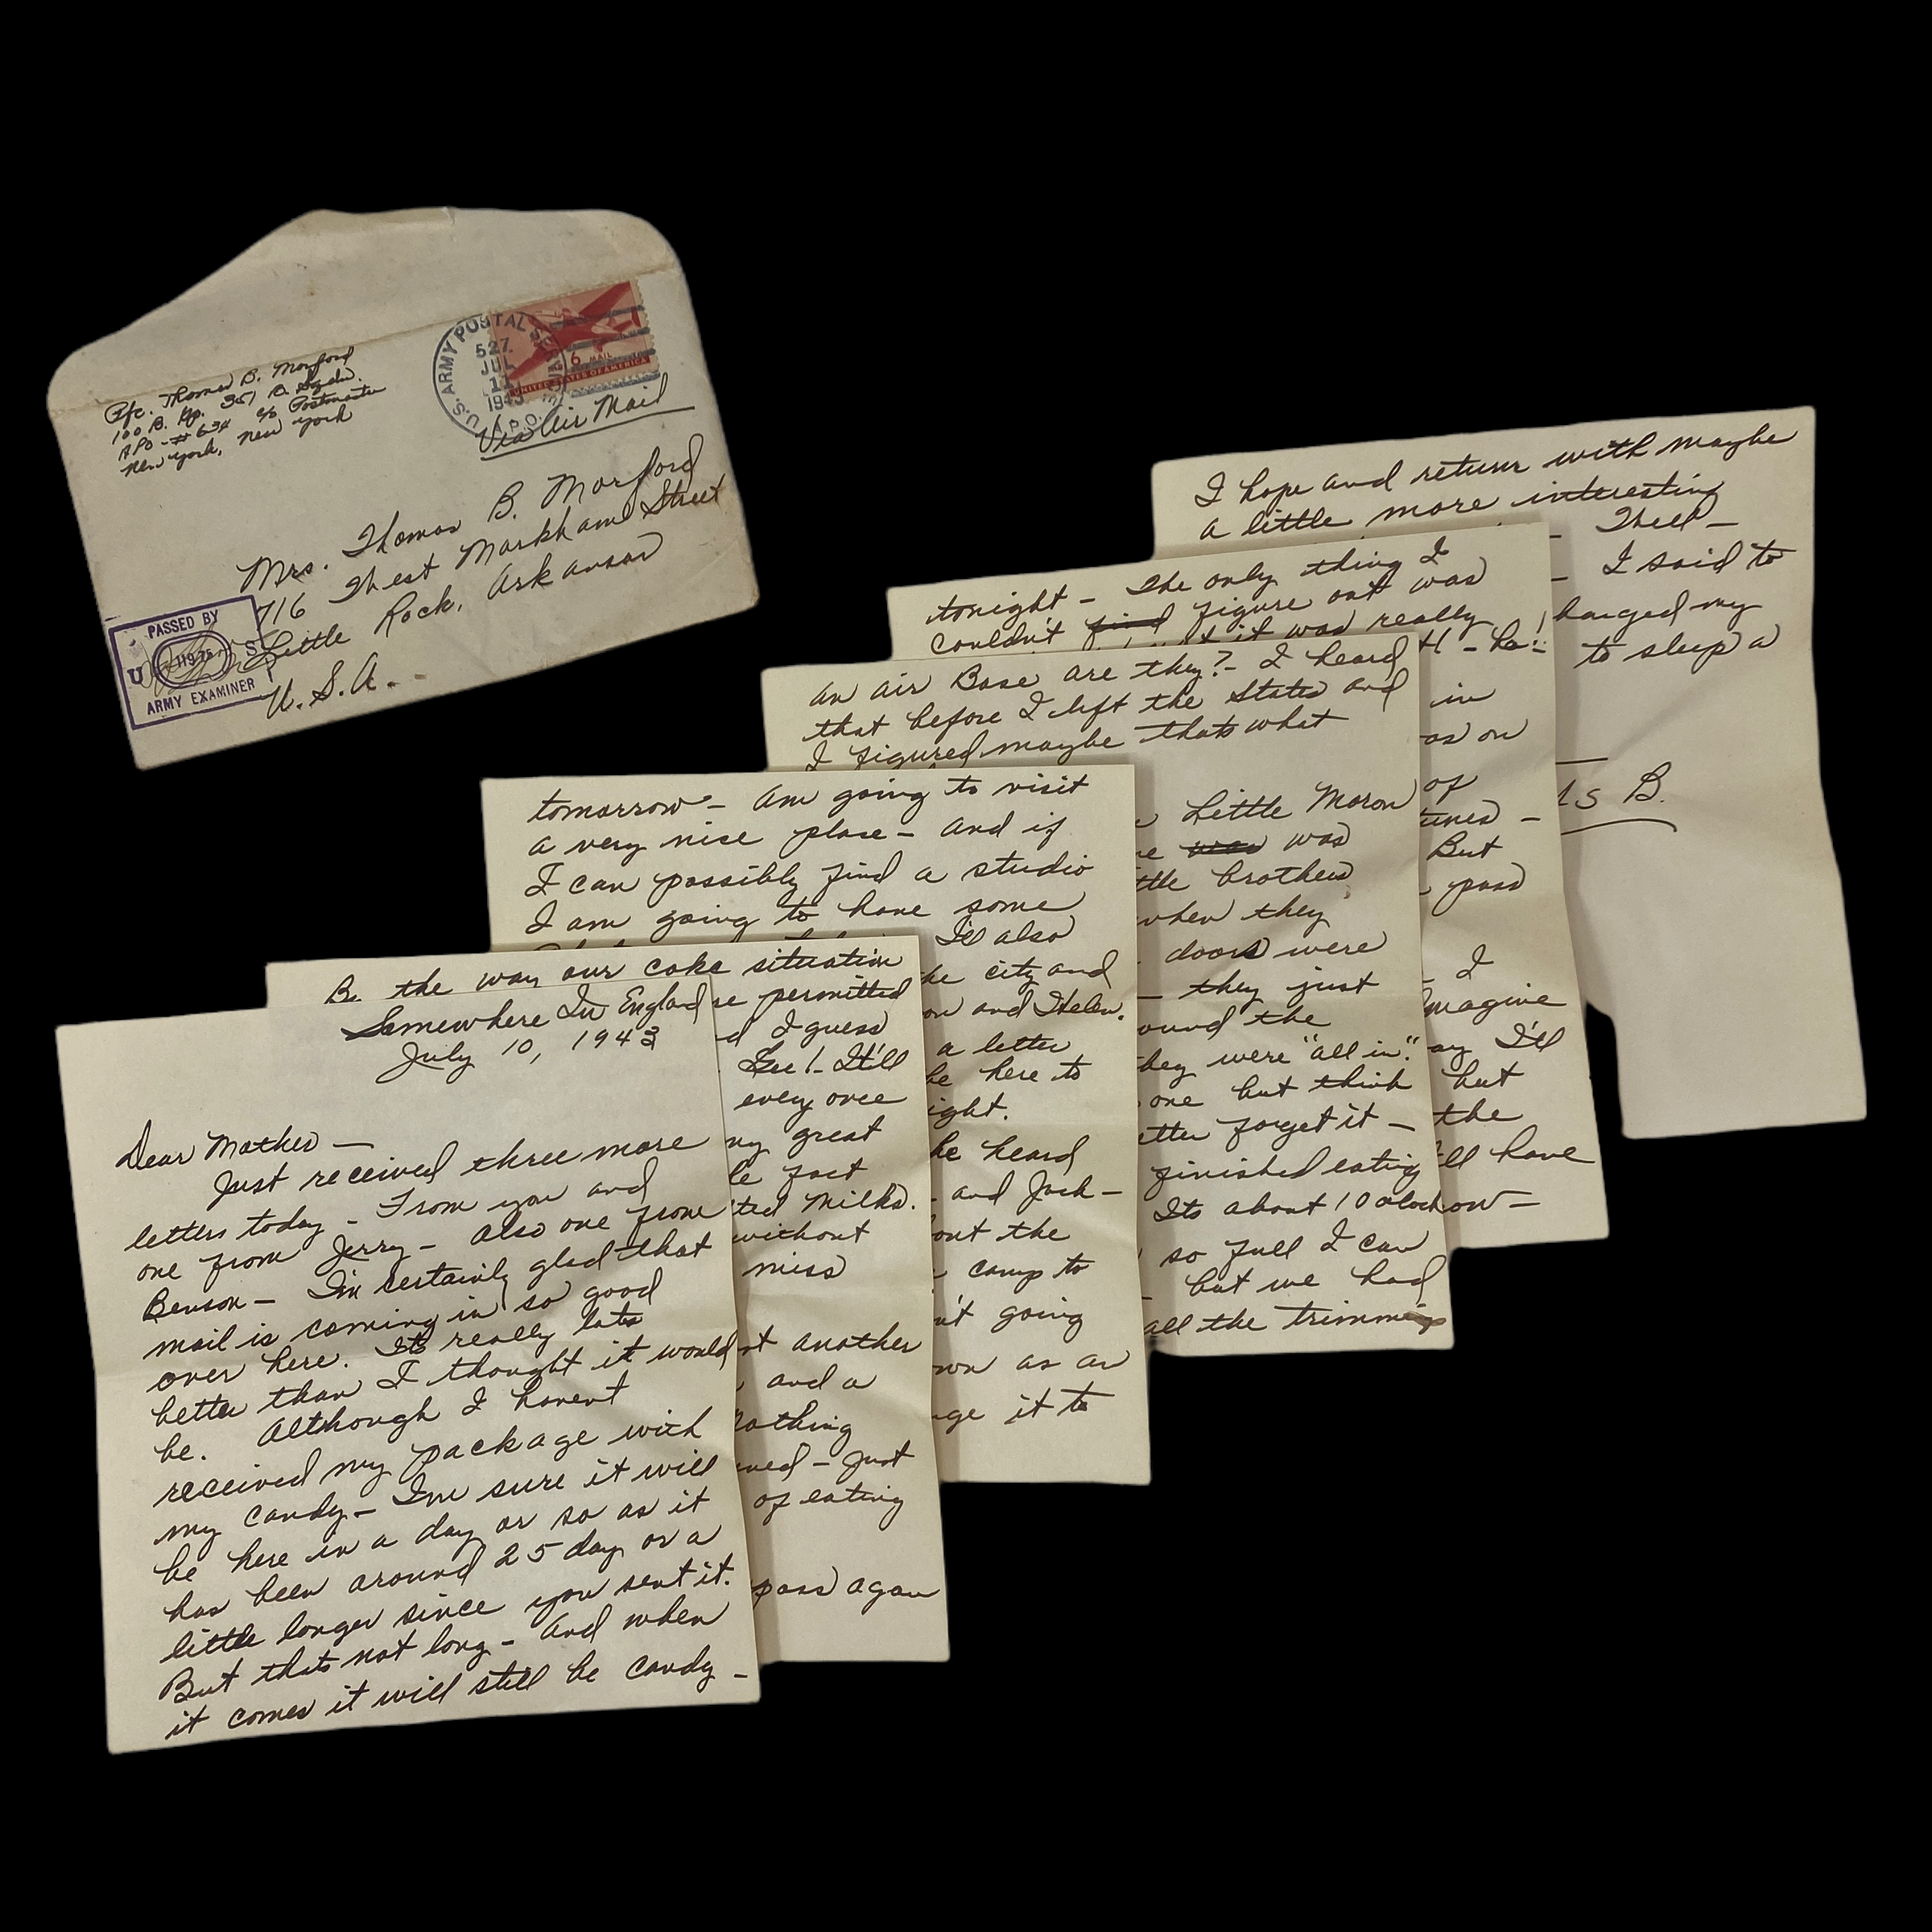 Pfc. Thomas B. Morford
100 B. Gp. 351 B. Sqdn.
APO - # 634 c/o Postmaster
New York, New York
U.S. ARMY POSTAL SERVICE
527
JUL
11
1943
A.P.O.
6 MAIL
UNITED STATES OF AMERICA
Via Air Mail
Mrs. Thomas B. Morford
716 West Markham Street
Little Rock, Arkansas
U.S.A.
PASSED BY
U S
ARMY EXAMINER
Somewhere In Englad
July 10, 1943
Dear Mother —
Just received three more
letters today - From you and
one from Jerry - Also one from
Benson - I'm certainly glad that
mail is coming in so good
over here. Its really lots
better than I thought it would
be. Although I havent
received my package with
my candy - I'm sure it will
be here in a day or so as it
has been around 25 day or a
little longer since you sent it.
But thats not long - And when
it comes it will still be candy -
B. the way our coke situation
permitted
I guess
Gee! - It'll
every once
great
fact
Milks.
without
miss
another
and a
nothing
- Just
of eating
pass again
tomorrow - Am going to visit
a very nice place - And if
I can possibly find a studio
I am going to have some
I'll also
the city and
and Helen.
a letter
be here to
he heard
- and Jack -
the
camp to
going
as an
it to
an air Base are they? - I heard
that before I left the States and
I figured maybe thats what
Little Moron
was was
brothers
when they
doors were
- they just
the
they were "all in".
one but think
forget it -
finished eating
Its about 10 oclock
so full I can
- but we had
all the trimmings
tonight - The only thing I
couldn't find figure out was
it was really
- ha!
in
as on
of
tunes -
But
pass
I
imagine
I'll
but
the
have
I hope and return with maybe
a little more interesting
Well -
- I said to
my
to sleep a
B.